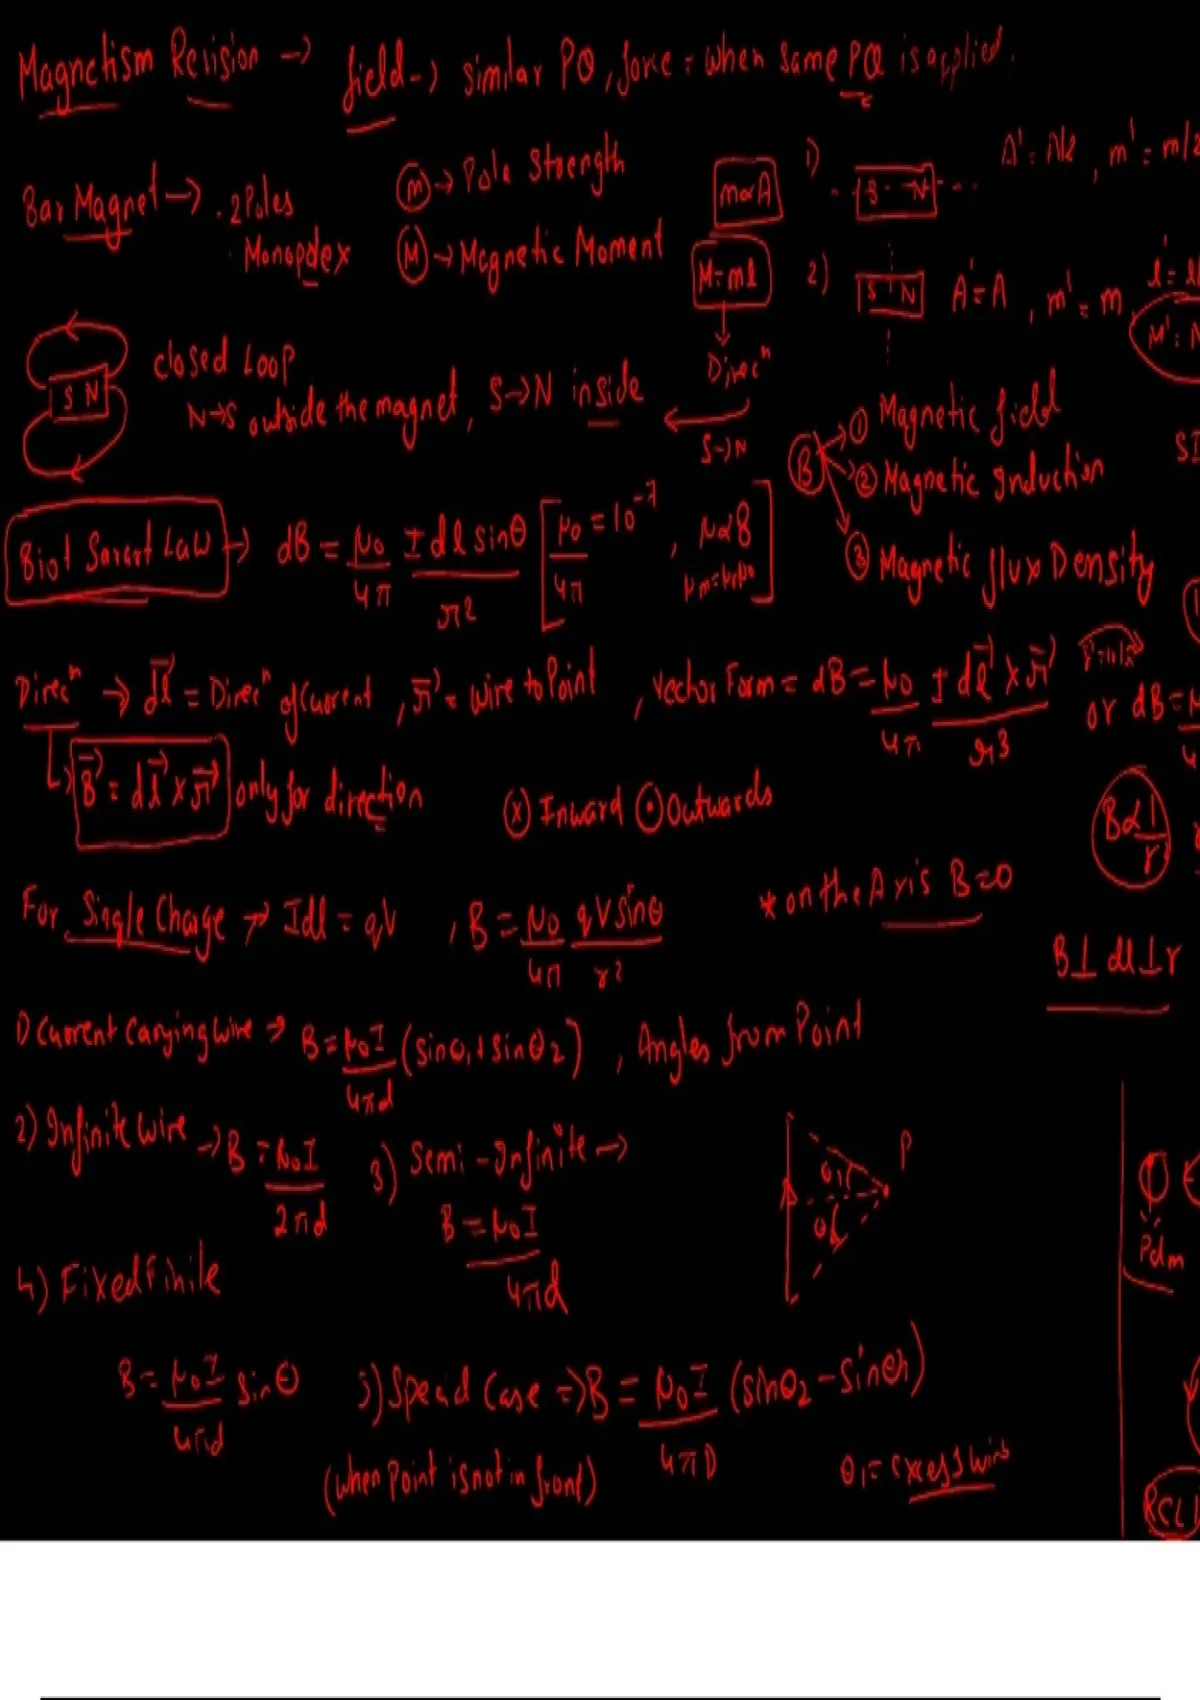 Magnetism Revision → field → similar PQ, force = when same PQ is applied.
Bar Magnet → . 2Poles
. Monopolex
(m) → Pole Strength
(M) → Magnetic Moment
m∝A
M=ml
↓
Direcⁿ
←
S→N
1) S N A' = A/2, m' = m/2
2) S N A' = A, m' = m,
S N
closed Loop
N→S outside the magnet, S→N inside
(B) → ① Magnetic field
② Magnetic Induction
③ Magnetic flux Density
Biot Savart Law → dB = μ₀/4π I dl sinθ/r² [μ₀/4π = 10⁻⁷,
Direcⁿ → dl⃗ = Direcⁿ of current, r⃗ = wire to Point, vector Form = dB = μ₀/4π I dl⃗ × r⃗/r³
or dB =
↳ B⃗ = dl⃗ × r⃗ only for direction ⓧ Inward ⊙ Outwards
B∝1/r
For Single Charge → Idl = qV, B = μ₀/4π qVsinθ/r² * on the Axis B=0
B⊥dl⊥r
1) current carrying wire → B = μ₀I/4πd (sinθ₁+sinθ₂), Angles from Point
2) Infinite wire → B = μ₀I/2πd 3) Semi-Infinite →
B = μ₀I/4πd
P
θ₁
θ₂
4) Fixed Finile
B = μ₀I/4πd sinθ 5) Special Case ⇒ B = μ₀I/4πD (sinθ₂-sinθ₁)
(when Point is not in front) θ₁ = excess wire
Pdm